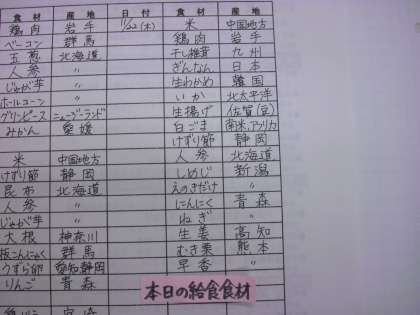 食材 産地 日付 食材 産地
鶏肉 岩手 11/22(木) 米 中国地方
ベーコン 群馬 鶏肉 岩手
玉葱 北海道 干し椎茸 九州
人参 〃 ぎんなん 日本
じゃが芋 〃 生わかめ 韓国
ホールコーン 〃 いか 北太平洋
グリンピース ニュージーランド 生揚げ 佐賀(豆)
みかん 愛媛 白ごま 南米,アフリカ
けずり節 静岡
米 中国地方 人参 北海道
けずり節 静岡 しめじ 新潟
昆布 北海道 えのきだけ 〃
人参 〃 にんにく 青森
じゃが芋 〃 ねぎ 〃
大根 神奈川 生姜 高知
板こんにゃく 群馬 むき栗 熊本
うずら卵 愛知,静岡 早香 〃
りんご 青森
本日の給食食材
宮崎